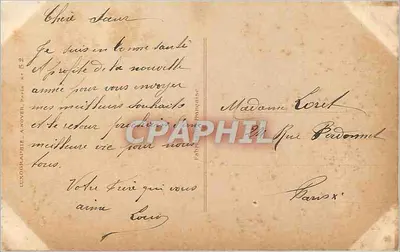 Chère Sœur
Je suis en bonne santé
et profite de la nouvelle
année pour vous envoyer
mes meilleurs souhaits
et le retour prochain
meilleure vie pour nous
tous.
Votre frère qui vous
aime Louis
Madame Loret
Rue Perdonnet
Paris X
CPAPHIL